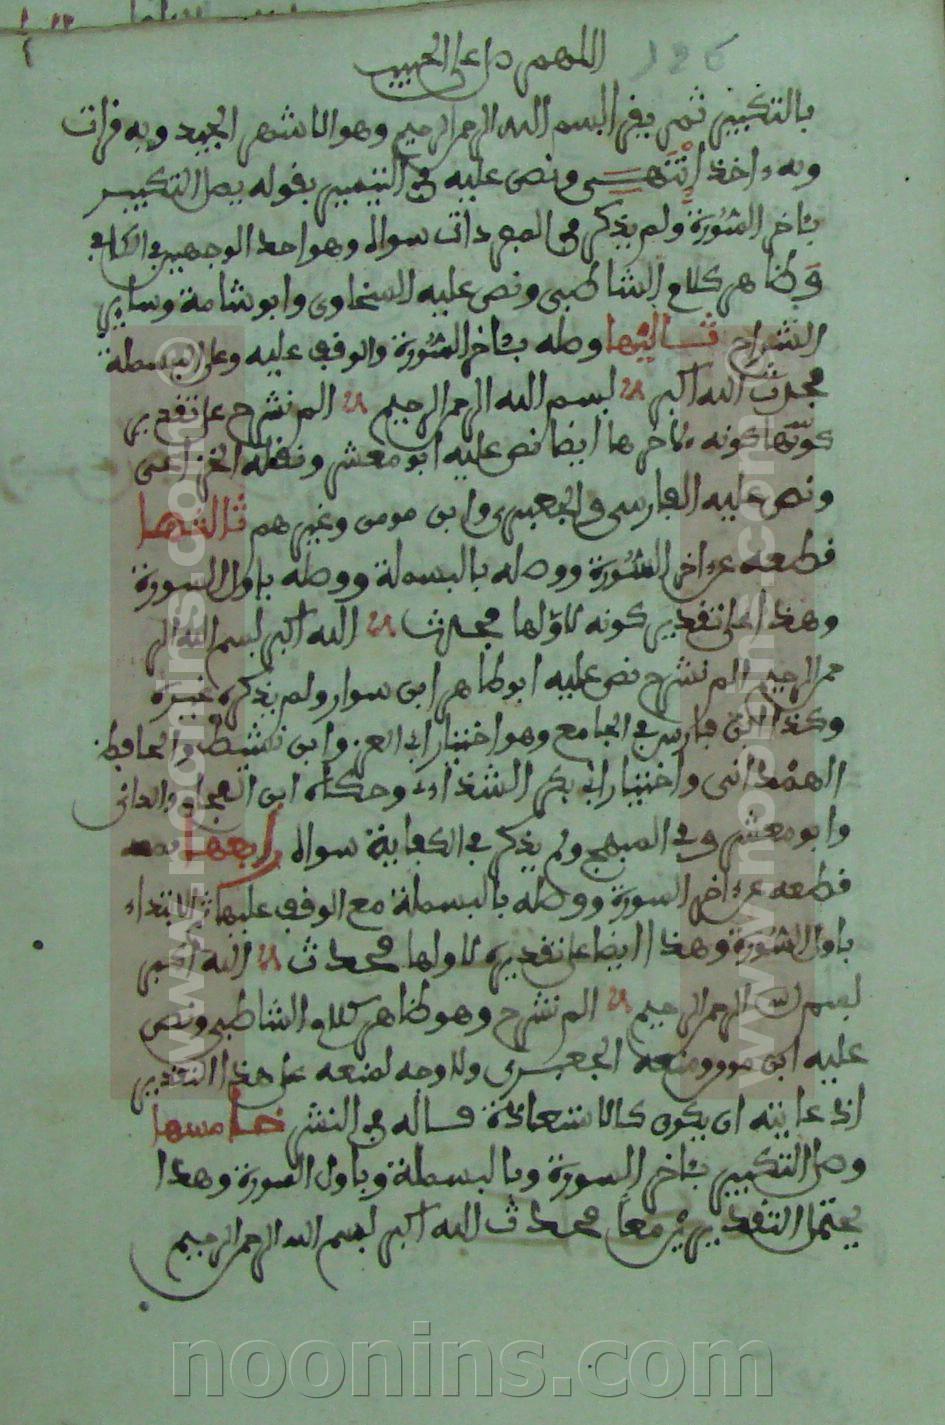 اللهم صل على الحبيب
126
بالتكبير ثم يقرا ببسم الله الرحمن الرحيم وهو الاشهر الجيد وبه قرات
وبه ءاخذ انتهى ونص عليه في التيسير بقوله يصل التكبير
بئاخر السورة ولم يذكر في المفردات سواه وهو احد الوجهين في الكافي
وظاهر كلام الشاطبي ونص عليه السخاوي وابو شامة وساير
الشراح ثانيها وصله بئاخر السورة والوقف عليه وعلى البسملة
فحدث الله اكبر بسم الله الرحمن الرحيم الم نشرح على تقدير
كونه لاخرها ايضا نص عليه ابو معشر ونقله الخزاعي
ونص عليه الفارسي والجعبري وابن مومن وغيرهم ثالثها
قطعه عن ءاخر السورة ووصله بالبسملة ووصله باول السورة
وهذا على تقدير كونه لاولها فحدث الله اكبر بسم الله الر
حمن الرحيم الم نشرح نص عليه ابو طاهر ابن سوار ولم يذكر غيره
وكذا ابن فارس في الجامع وهو اختيار ابي العز وابن شيطا والحافظ
الهمذاني واختيار ابي بكر الشذاءي وحكاه ابن الفحام والداني
وابو معشر وفي المبهج ولم يذكر في الكفاية سواه رابعها
قطعه عن ءاخر السورة ووصله بالبسملة مع الوقف عليها ثم الابتداء
باول السورة وهذا ايضا على تقديره لاولها فحدث الله اكبر
بسم الله الرحمن الرحيم الم نشرح وهو ظاهر كلام الشاطبي ونص
عليه ابن مومن ومنعه الجعبري ولا وجه لمنعه على هذا التقدير
اذ غايته ان يكون كالاستعاذة قاله في النشر خامسها
وصل التكبير بئاخر السورة وبالبسملة وباول السورة وهذا
يحتمل التقديرين معا فحدث الله اكبر بسم الله الرحمن الرحيم
www.noonins.com
www.noonins.com
noonins.com